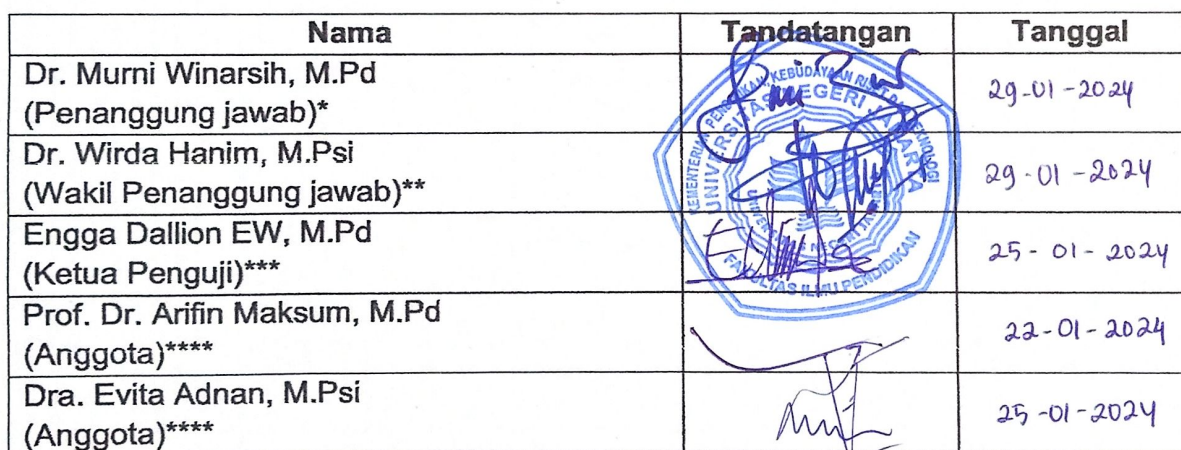 Nama Tandatangan Tanggal
Dr. Murni Winarsih, M.Pd
(Penanggung jawab)*
29-01-2024
Dr. Wirda Hanim, M.Psi
(Wakil Penanggung jawab)**
29-01-2024
Engga Dallion EW, M.Pd
(Ketua Penguji)***
25-01-2024
Prof. Dr. Arifin Maksum, M.Pd
(Anggota)****
22-01-2024
Dra. Evita Adnan, M.Psi
(Anggota)****
25-01-2024
KEMENTERIAN PENDIDIKAN, KEBUDAYAAN RISET DAN TEKNOLOGI
UNIVERSITAS NEGERI JAKARTA
UNIVERSITAS NEGERI JAKARTA
FAKULTAS ILMU PENDIDIKAN